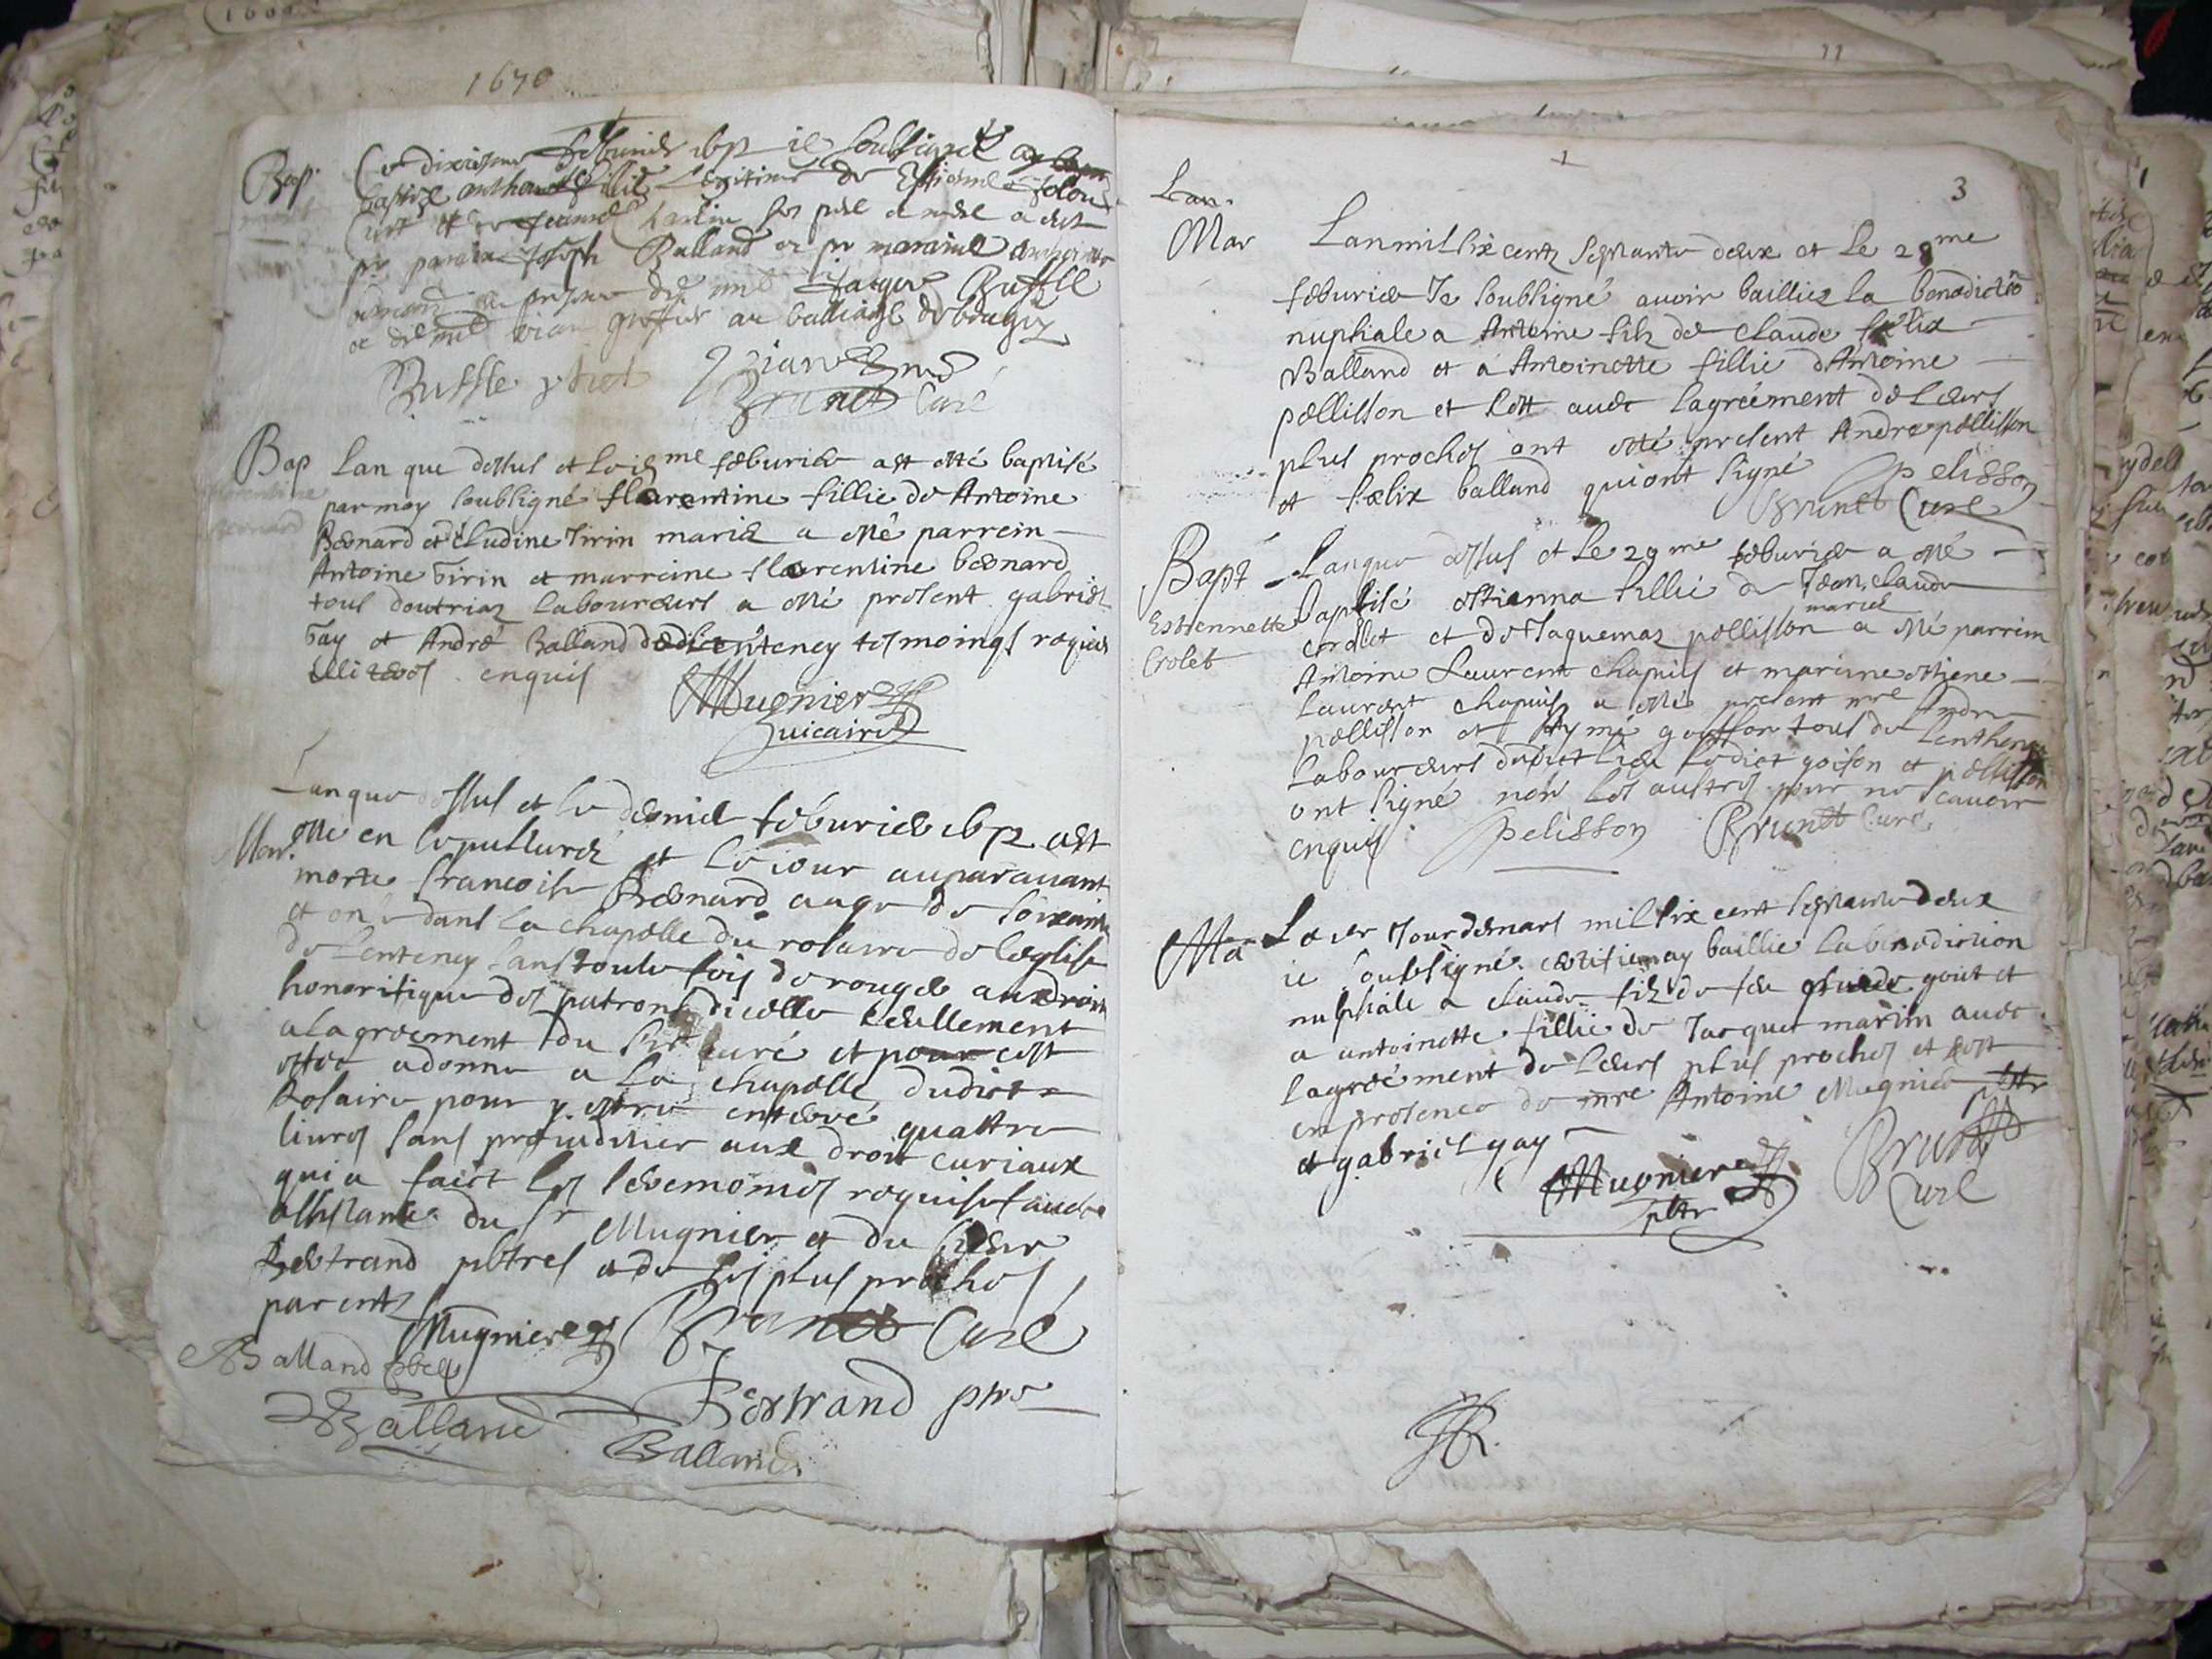 1670
Bap. Ce dixiesme feburier 1672 ie soubsigné ay
baptizé fillie legitime de Estienne
et Jeanne ses pere et mere a esté
pr parain Joseph Balland et pr maraine
Jacques Buffle
et de greffier au balliage de beugey
Buffle
Brunet Curé
Bap Lan que dessus et le me feburier ast esté baptisé
florentine
par moy soubsigné florentine fillie de Antoine
Besnard et Cludine Tirin mariez a esté parrein
Antoine Tirin et marreine florentine besnard
tous doutriaz laboureurs a esté present gabriel
Gay et André Balland de Lenteney tesmoings requis
illiteres enquis
Mugnier
vicaire
Lan que dessus et le dernier feburier 1672 ast
Mor. esté en sepulturez et le iour auparauant
morte francoise Besnard augé de soixante
et onze dans la chapelle du rosaire de leglise
de Lenteney sans toute fois deroger aux droits
honorifique des patrons dicelle seullement
a lagreement du Sr curé et pour cest
effect a donné a la chapelle dudict
Rosaire pour y estre enterré quattre
liures sans preiudicier aux droit curiaux
qui a faict les seremonies requises auec
assistance du Sr Mugnier et du Sieur
Bertrand pbtres et de ses plus proches
parents
Mugnier Brunet Curé
Balland
Bertrand
Balland
Balland
3
Lan.
Mar Lan mil six cents septante deux et le 28me
feburier Je soubsigné auoir baillies la benedictio
nuptiale a Antoine fils de Claude felix
Balland et a Antoinette fillie dAntoine
pellisson et sott auec lagréement de leurs
plus proches ont esté present Andre pellisson
et felix balland qui ont signé pelisson
Brunet Curé
Bapt Lan que dessus et le 29me feburier a esté
Baptisé estienna fillie de Jean Claude
Estiennette
mariés
crollet et de Jaquemaz pellisson a esté parrim
Crolet
Antoine Laurent chapuis et marime estiene
Laurent chapuis a esté present mre Andre
pellisson et Aymé goiffon tous de Lenthenay
laboureurs dudict lieu ledict goifon et pellisson
ont signé non les austres pour ne scauoir
enquis pelisson Brunet Curé
Ma Le 1er Jour de mars mil six cent septante deux
ie soubsigné certifie ay baillie la benediction
nuptiale a claude filz de feu claude goiet et
a antoinette fillie de Jacques marim auec
lagréement de leurs plus proches et sost
en presence de mre Antoine Mugnier pbtr
et gabriel gay
Mugnier
pbtr
Brunet
Curé